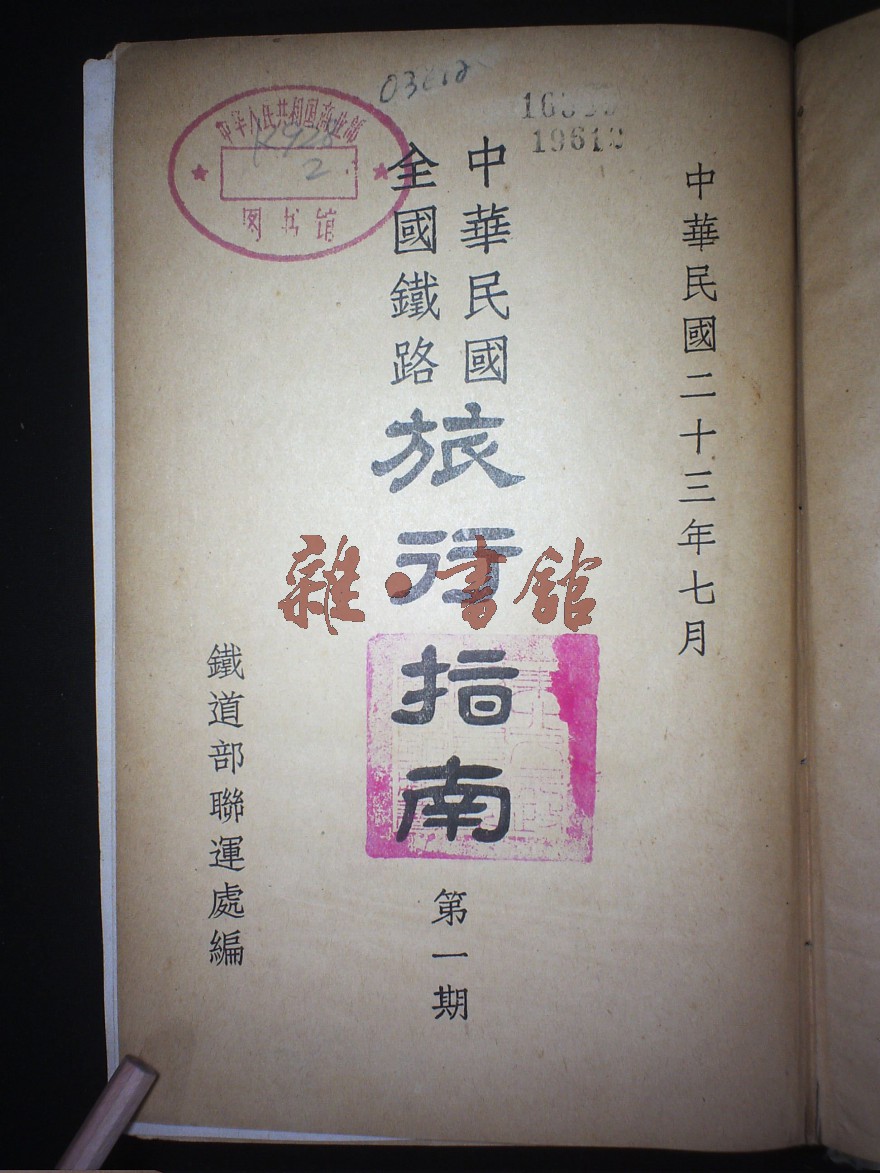 中華民國二十三年七月
中華民國
全國鐵路
旅行指南
第一期
鐵道部聯運處編
中华人民共和国商业部
图书馆
R928
2
雜·書館